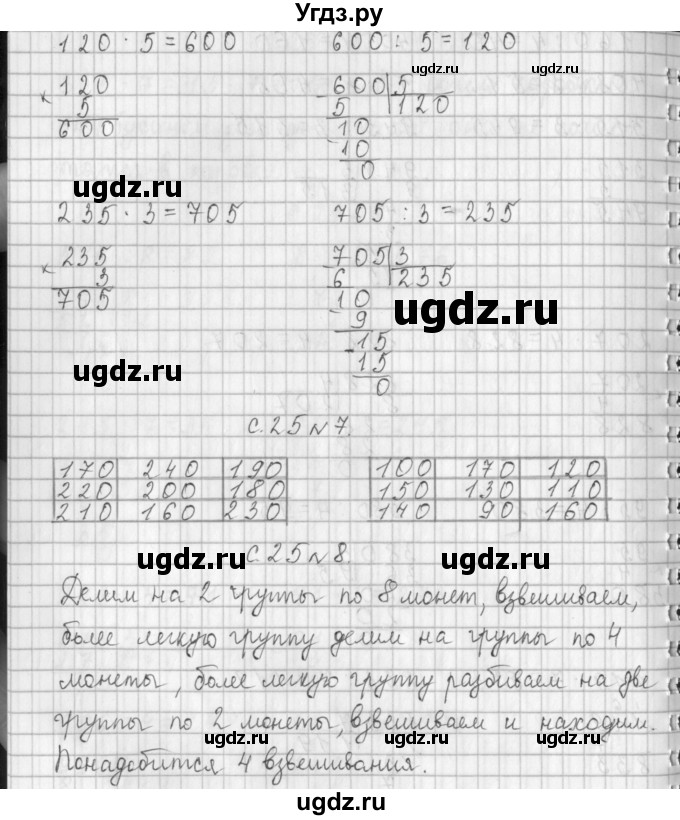 Угдз.ру
120 · 5 = 600 600 : 5 = 120
ugdz.ru ugdz.ru
× 120
5
600
- 600 | 5
5 120
- 10
10
0
ugdz.ru
235 · 3 = 705 705 : 3 = 235
× 235
3
705
- 705 | 3
6 235
- 10
9
- 15
15
0
ugdz.ru
ugdz.ru
с. 25 № 7.
170 240 190 100 170 120
220 200 180 150 130 110
210 160 230 140 90 160
ugdz.ru ugdz.ru
с. 25 № 8.
Делим на 2 группы по 8 монет, взвешиваем,
более легкую группу делим на группы по 4
монеты, более легкую группу разбиваем на две
группы по 2 монеты, взвешиваем и находим.
ugdz.ru ugdz.ru
Понадобится 4 взвешивания.
ugdz.ru